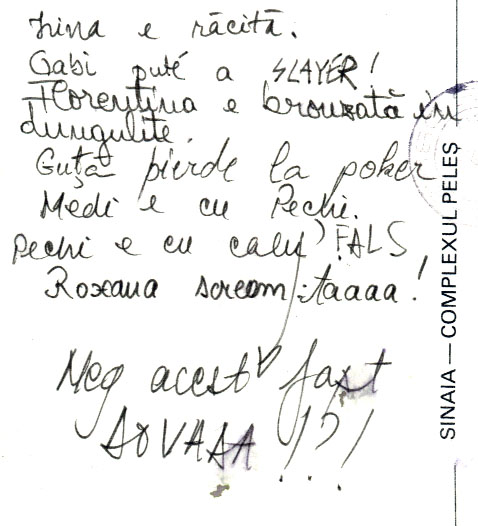 Irina e răcită.
Gabi pute a SLAYER!
Florentina e bronzată în
dungulite.
Guță pierde la poker
Medi e cu Pechi.
Pechi e cu calu' FALS
Roxana scream:taaaa!
Meg acest fapt
SOVASA !?!
SINAIA — COMPLEXUL PELEȘ